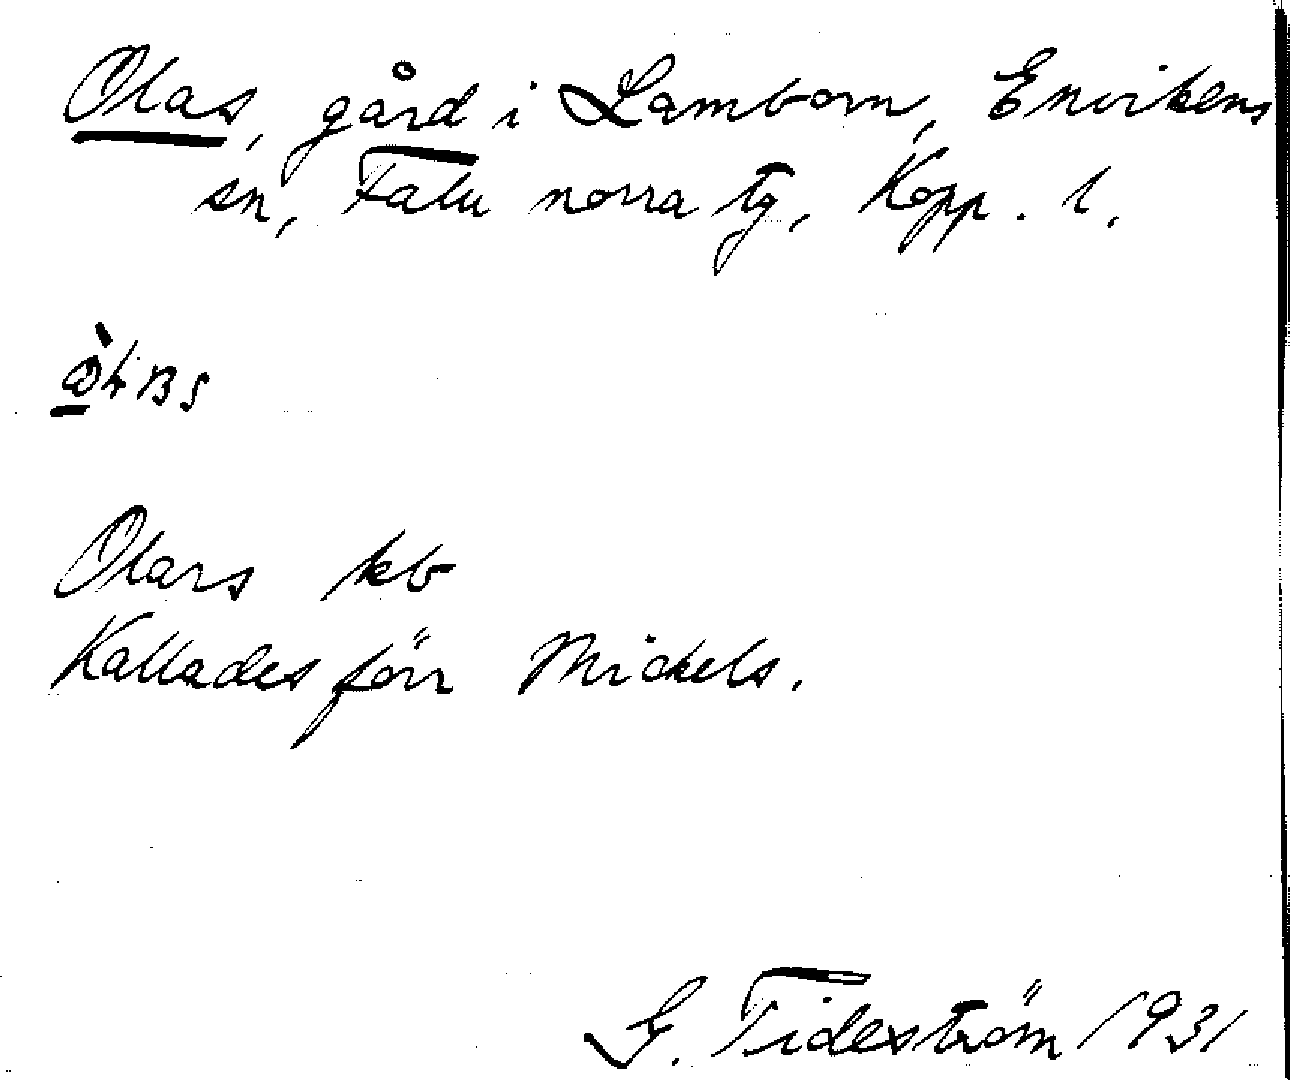 Olas, gård i Lamborn, Envikens
sn, Falu norra tg, Kopp. l.
Olars kb
Kallades förr Mickels.
G. Tideström 1931